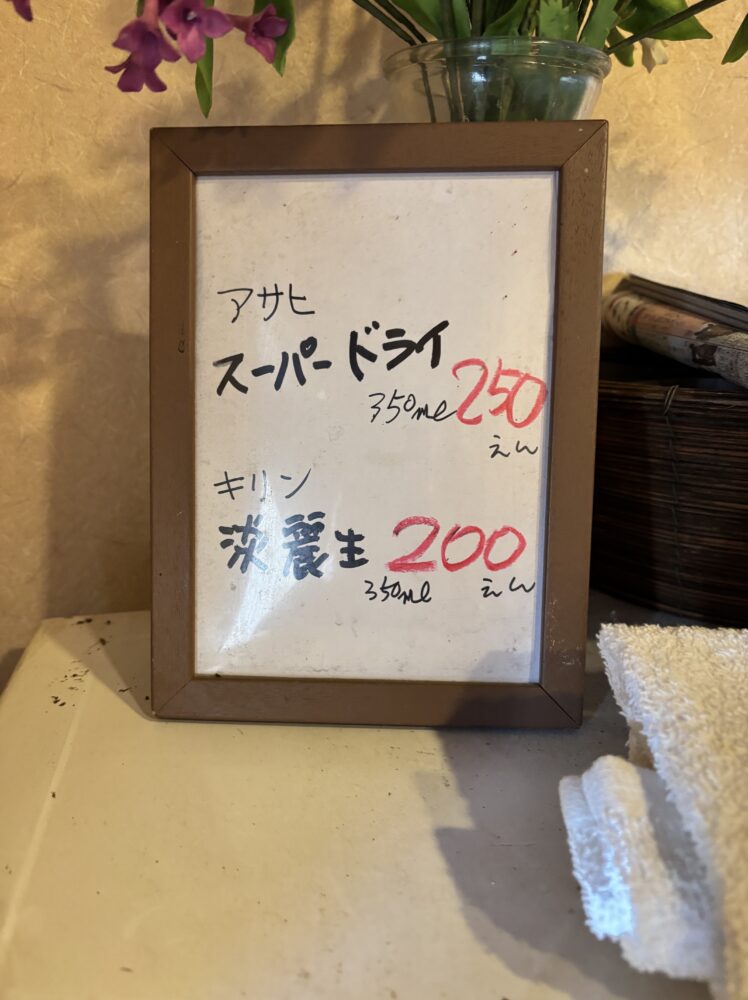 アサヒ
スーパードライ
350ml 250
えん
キリン
淡麗生 200
350ml えん